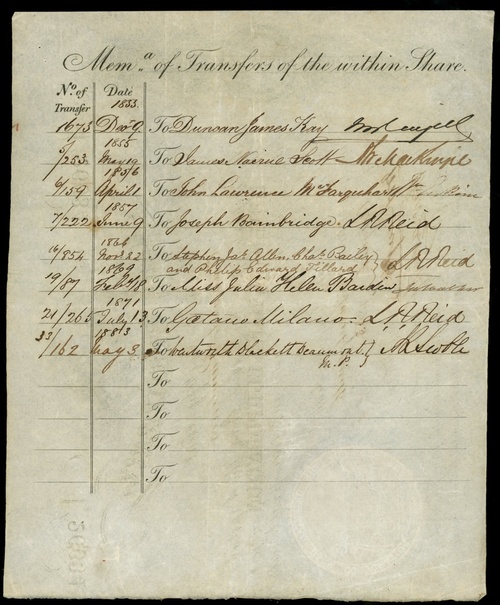 Mem.ª of Transfers of the within Share.
Nº of Transfer
Date
1853
1673 Decr 9 To Duncan James Kay
1855
5/253 May 19 To James Nairne Scott
1856
6/59 April 1 To John Lawrence McFarquhar
1857
7/222 June 9 To Joseph Bainbridge L.R. Reid
1866
16/854 Novr 22 To Stephen Jas Allen, Chas Bailey
and Philip Edward Tillard } L.R. Reid
1869
19/87 Feby 18 To Miss Julia Helen Barden
1871
21/265 July 13 To Gaetano Milano L.R. Reid
1883
33/162 May 3 To Wentworth Blackett Beaumont
M.P. }
To
To
To
To